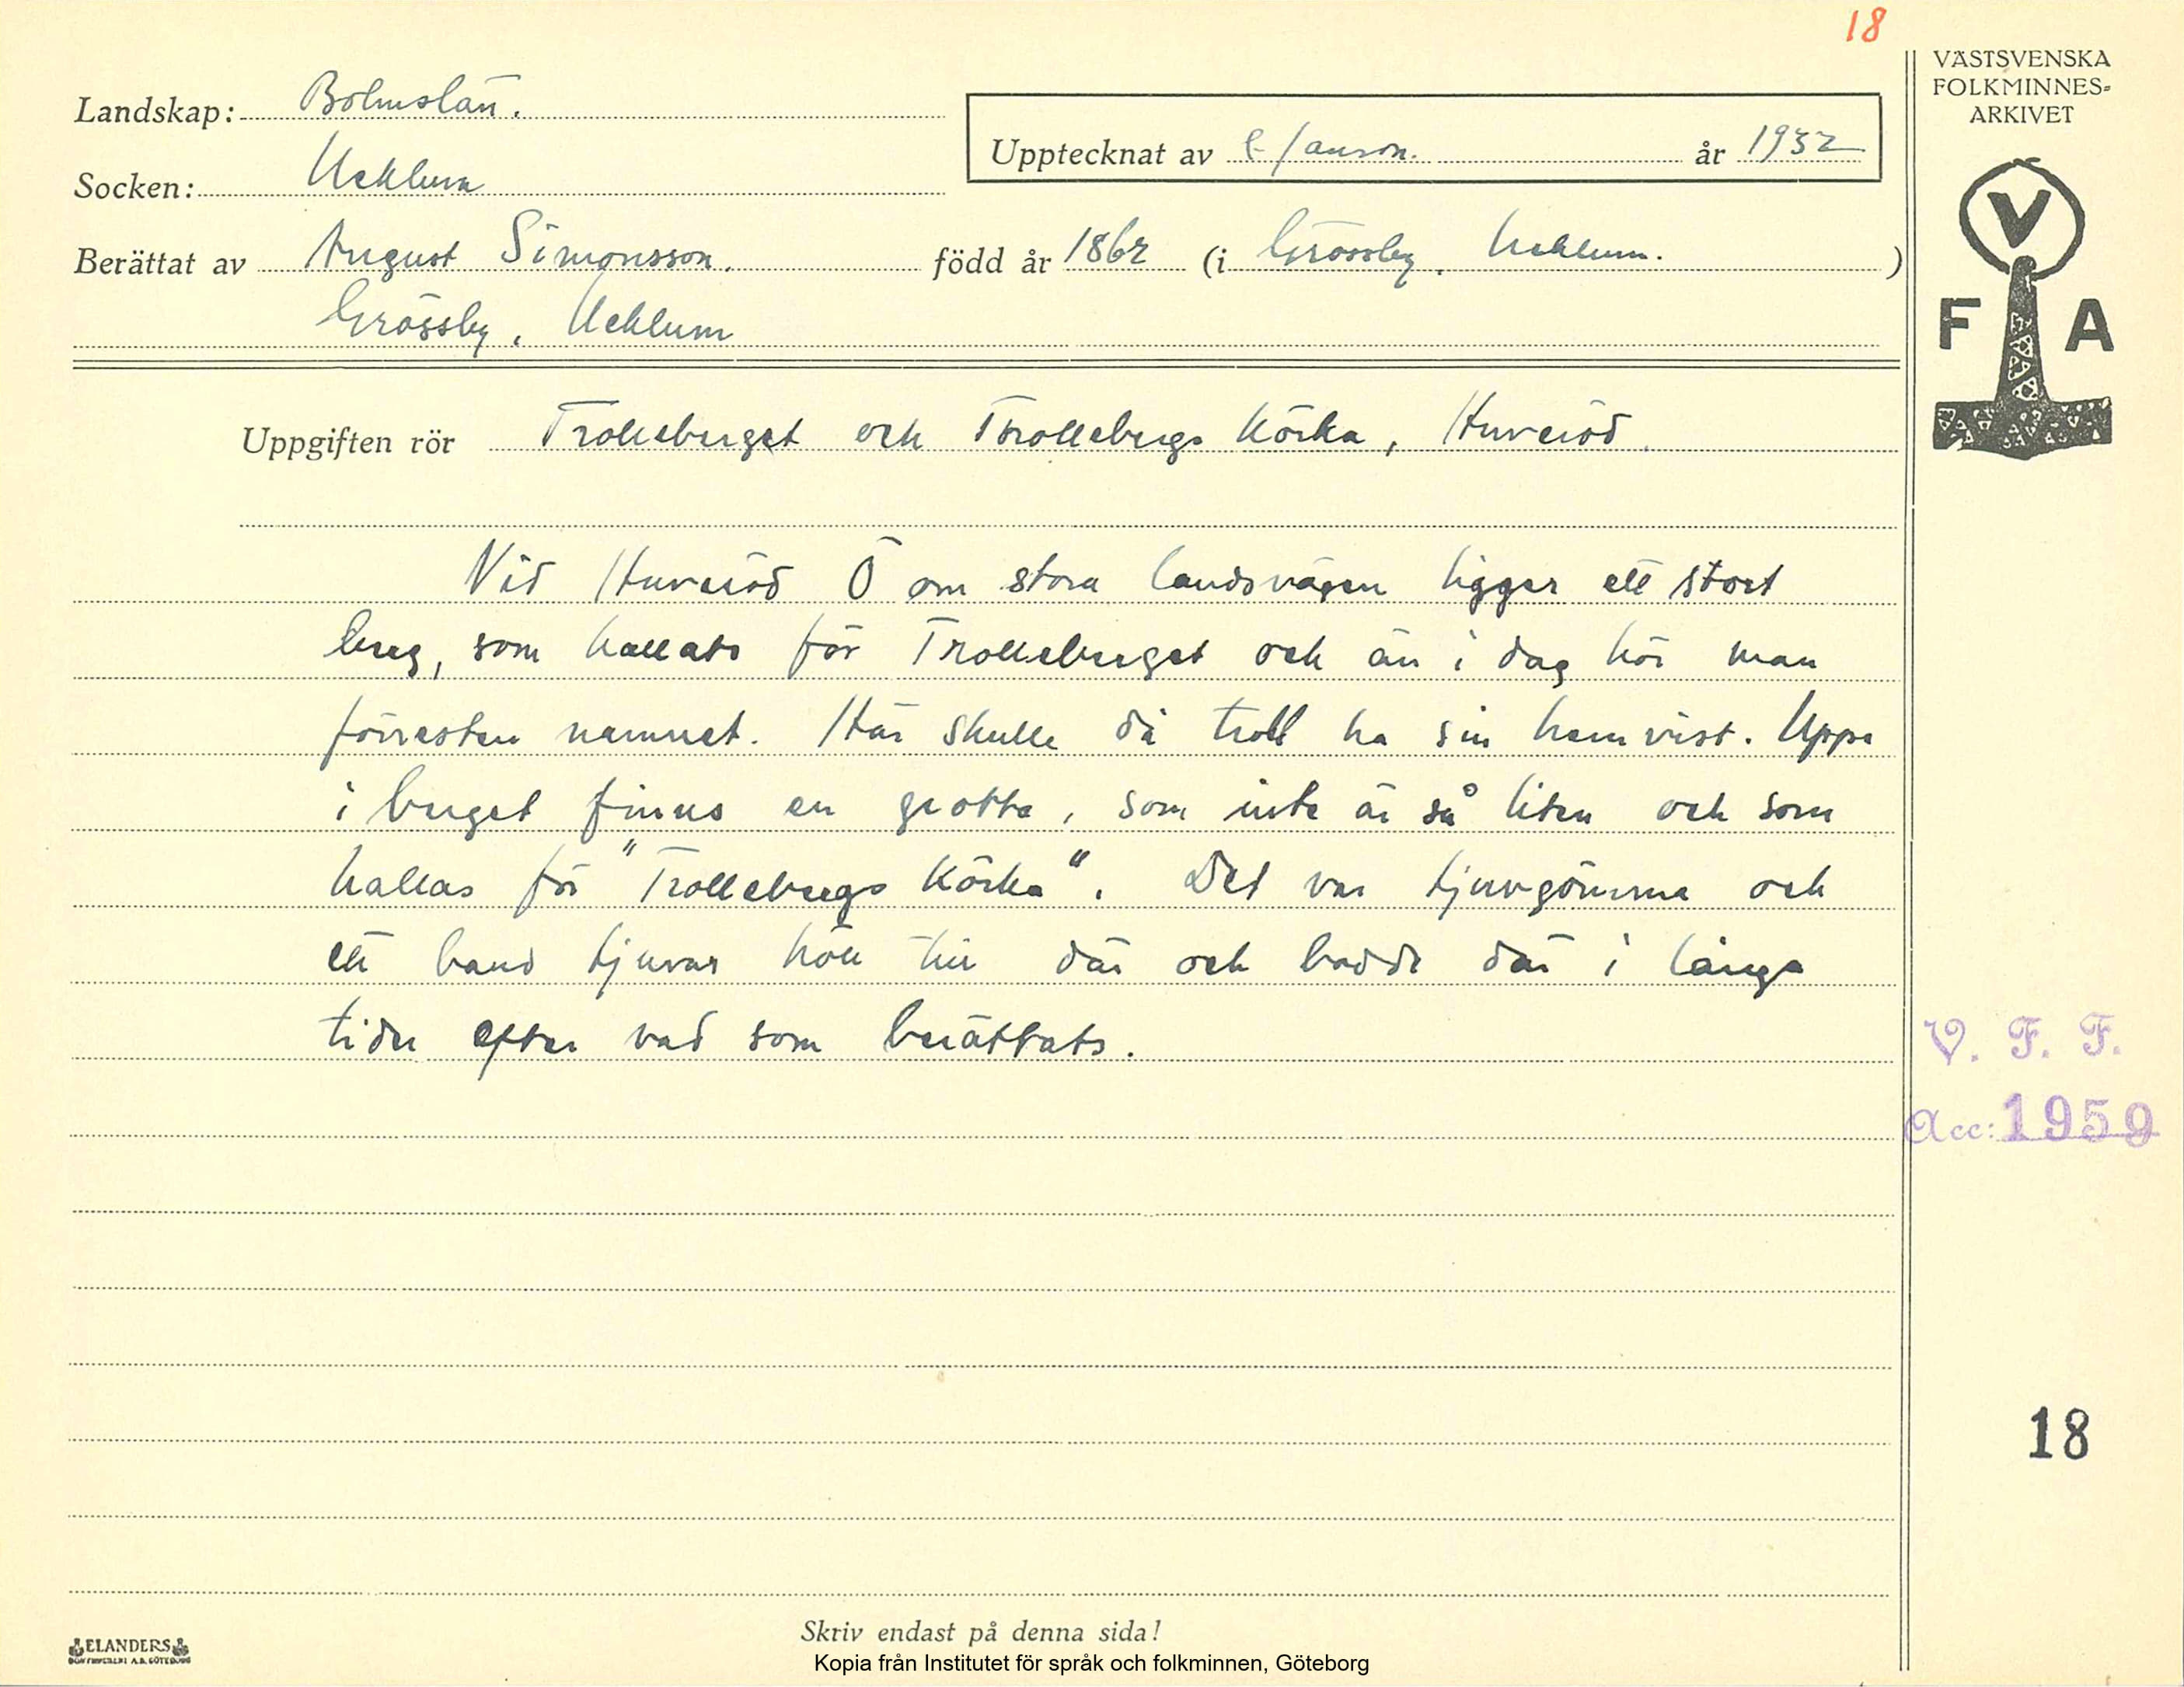 18
VÄSTSVENSKA
FOLKMINNES-
ARKIVET
Landskap: Bohuslän.
Upptecknat av C. Janson. år 1932
Socken: Ucklum
Berättat av August Simonsson. född år 1862 (i Grössby, Ucklum.)
Grössby, Ucklum
V
F A
Uppgiften rör Trolleberget och Trollebergs Körka, Huveröd.
Vid Huveröd Ö om stora landsvägen ligger ett stort
berg, som kallats för Trolleberget och än i dag hör man
förresten namnet. Här skulle då troll ha sin hemvist. Uppe
i berget finns en grotta, som inte är så liten och som
kallas för "Trollebergs Körka". Det var tjuvgömma och
ett band tjuvar höll till där och bodde där i långa
tider efter vad som berättats.
V. F. F.
Acc: 1959
18
Skriv endast på denna sida!
ELANDERS
Kopia från Institutet för språk och folkminnen, Göteborg